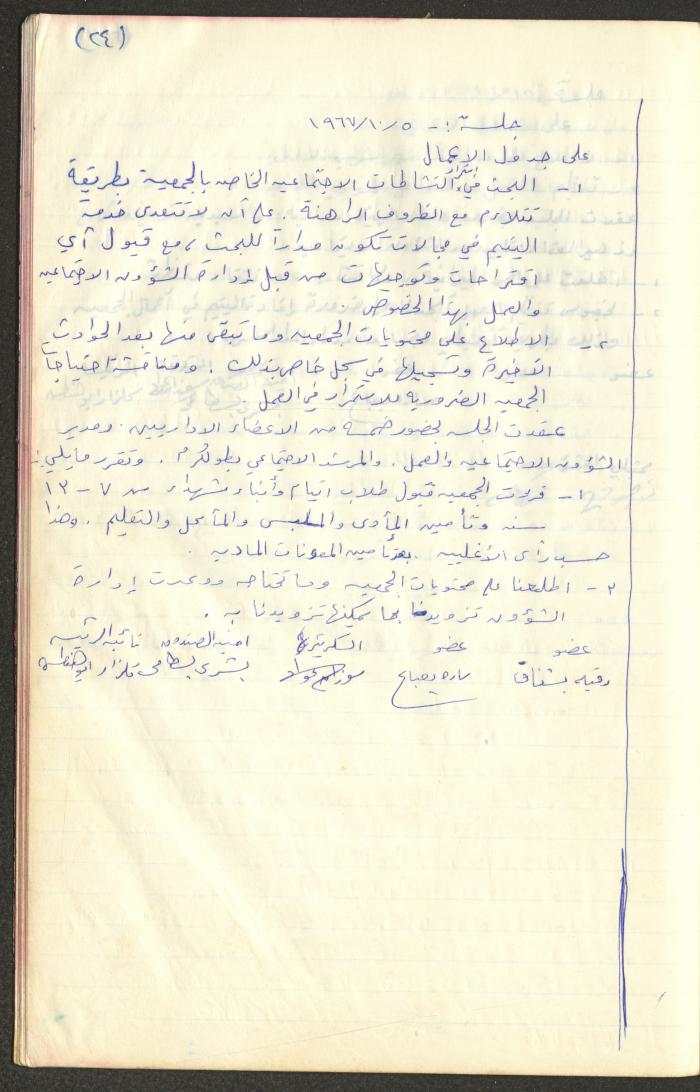 (٢٤)
جلسة :- ٥/١٠/١٩٦٧
على جدول الاعمال
١- البحث في النشاطات الاجتماعيه الخاصه بالجمعية بطريقة
تتلاءم مع الظروف الراهنة . على أن لا تتعدى خدمة
اليتيم في مجالات تكون مداراً للبحث ، مع قبول أي
اقتراحات وتوجيهات من قبل إدارة الشؤون الاجتماعيه
والعمل بهذا الخصوص .
الاطلاع على محتويات الجمعيه وما تبقى منها بعد الحوادث
الأخيرة وتسجيلها في سجل خاص بذلك . ومناقشة احتياجات
الجمعيه الضروريه للاستمرار في العمل .
عقدت الجلسه بحضور خمسة من الاعضاء الاداريين . ومدير
الشؤون الاجتماعيه والعمل . والمرشد الاجتماعي بطولكرم . وتقرر مايلي :
١- قررت الجمعيه قبول طلاب ايتام وأبناء شهداء من ٧ - ١٣
سنه وتأمين المأوى والملبس والمأكل والتعليم . وهذا
حسب رأى الأغلبيه . بعد تأمين المعونات الماديه .
٢- اطلعنا على محتويات الجمعيه وما تحتاجه ووعدت إدارة
الشؤون تزويدنا بما يمكنها تزويدنا به .
عضو عضو السكرتيرة امينه الصندوق نائبه الرئيسه
رقيه بشناق ساره بشرى